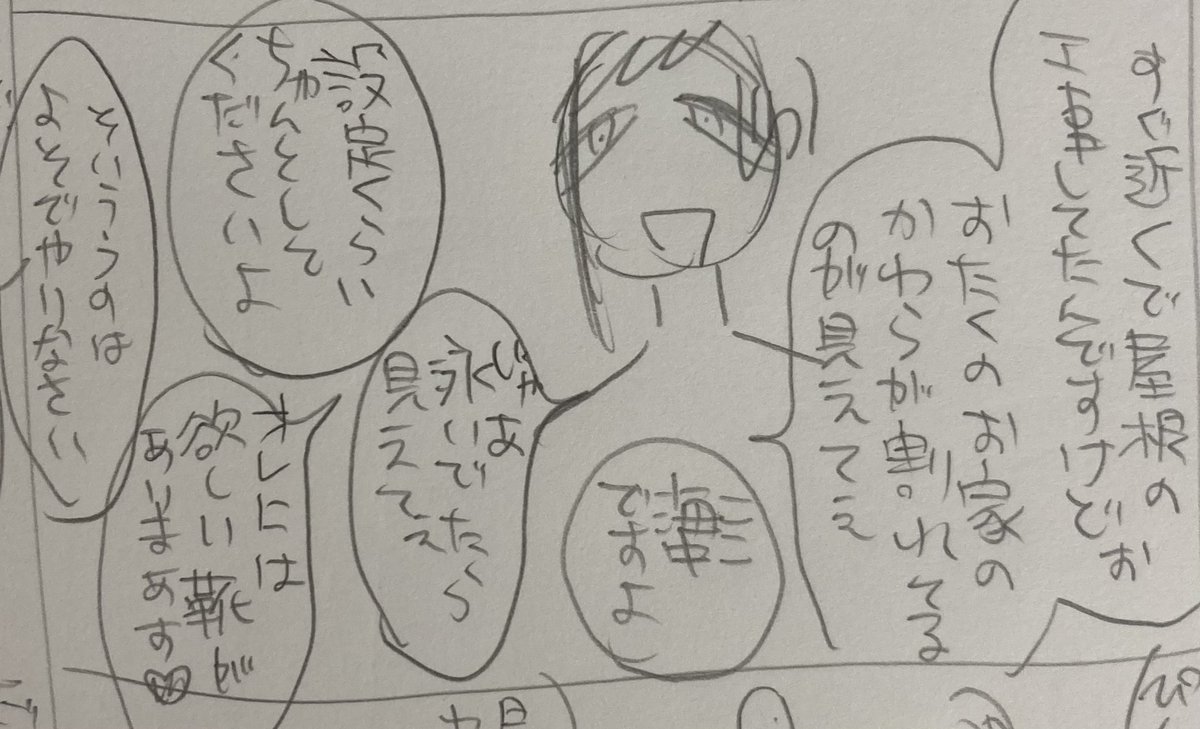 すぐ近くで屋根の
工事してたんですけどお
おたくのお家の
かわらが割れてる
のが見えてえ
ここ
海中
ですよ
じゃあ
泳いでたら
見えてえ
設定くらい
ちゃんとして
くださいよ
オレには
欲しい靴が
ありまあす♡
そういうのは
よそでやりなさい